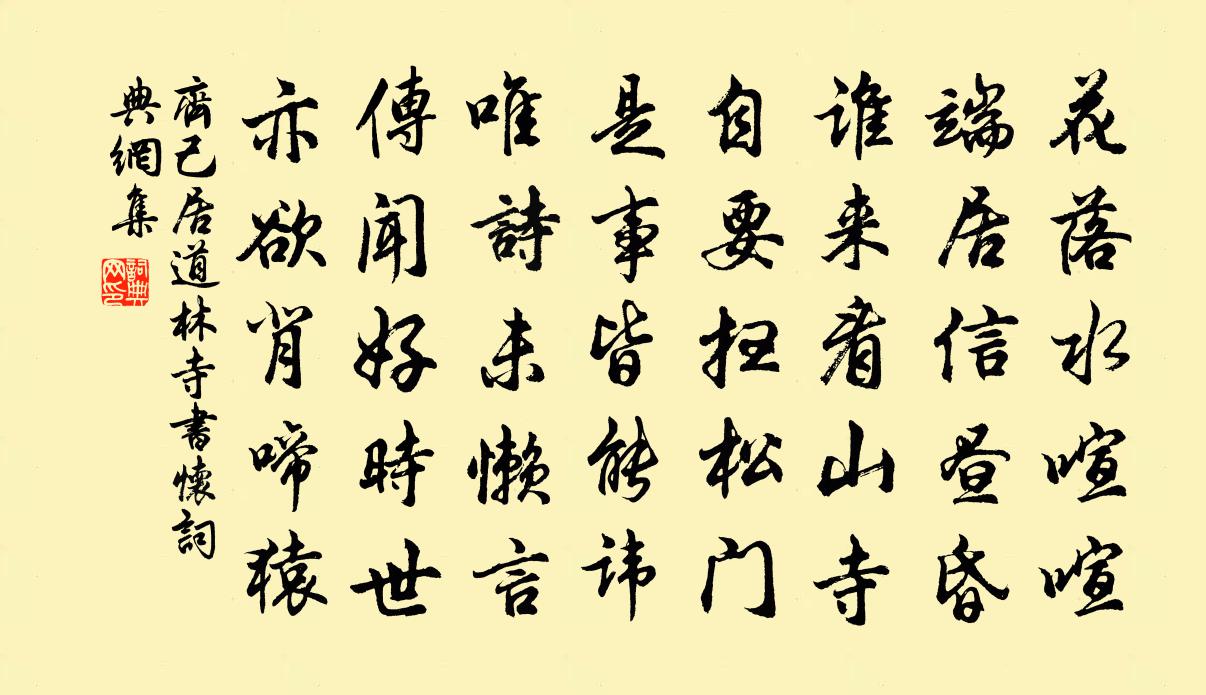 花落水喧喧
端居信昼昏
谁来看山寺
自要扫松门
是事皆能讳
唯詩未懒言
傳闻好時世
亦欲背啼猿
齊己居道林寺書懷詞
典網集
詞典
网印